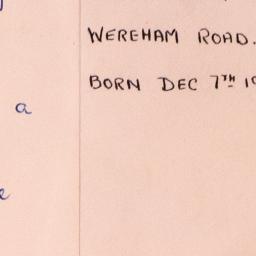 WEREHAM ROAD.
BORN DEC 7TH
a